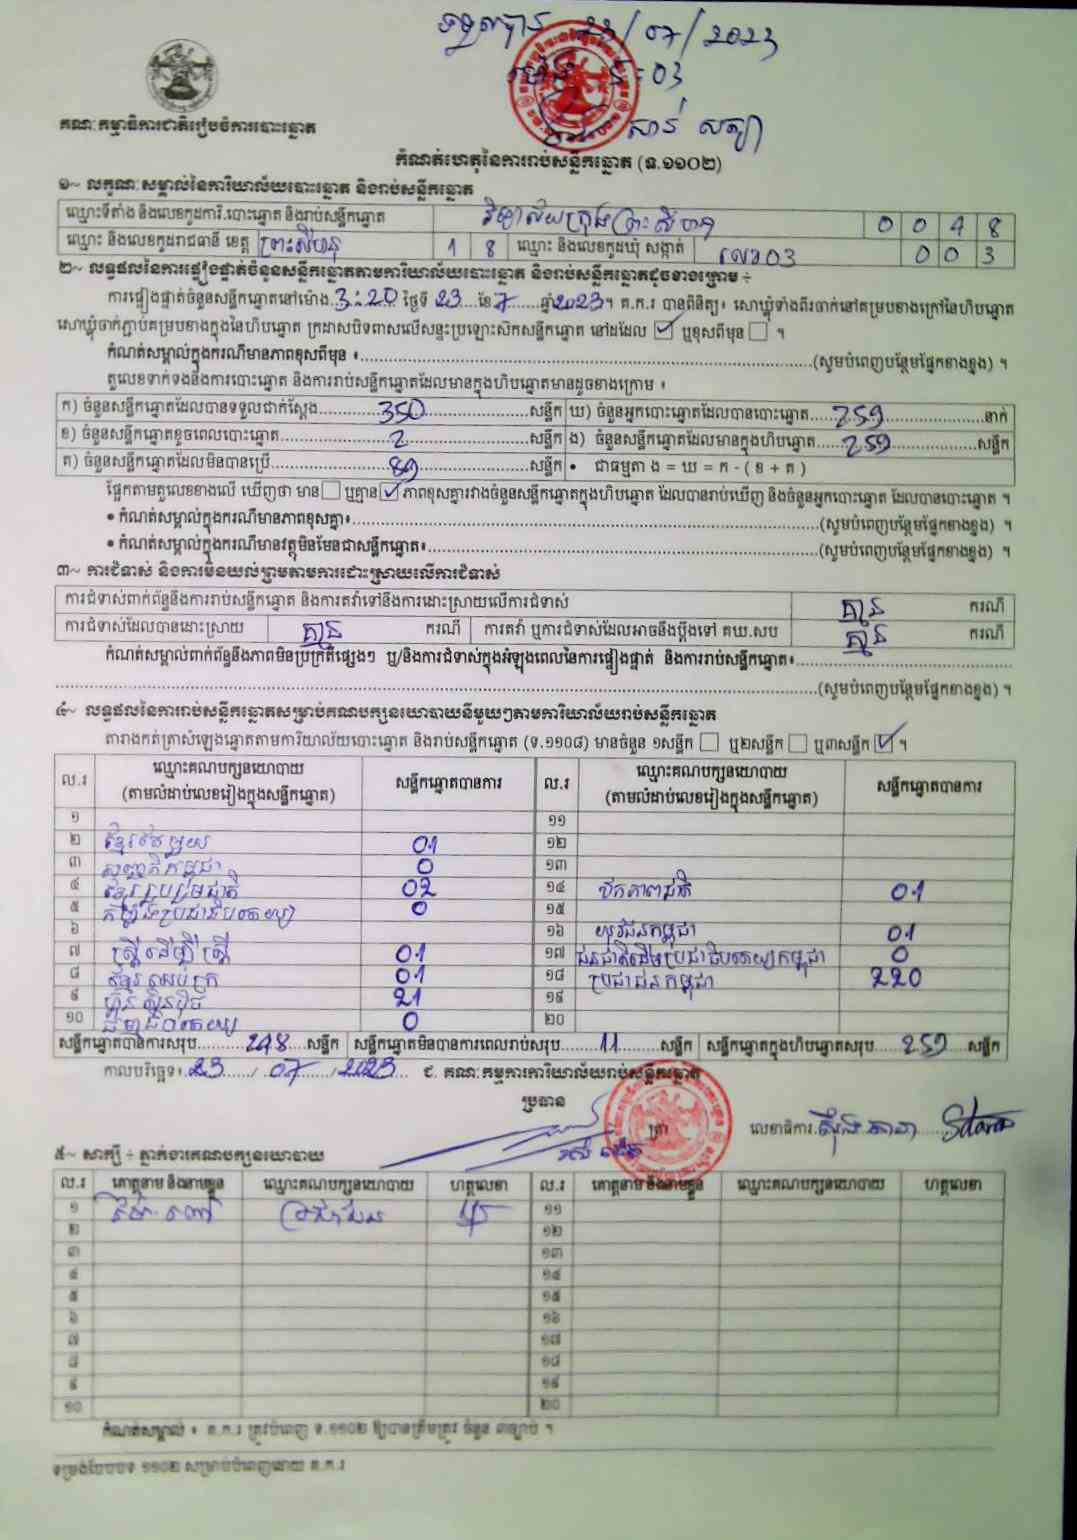 ទទួលបាន 23/07/2023
ម៉ោង 5:03
សាន់ សត្យា
គណៈកម្មាធិការជាតិរៀបចំការបោះឆ្នោត
កំណត់ហេតុនៃការរាប់សន្លឹកឆ្នោត (ទ.១១០២)
១~ លក្ខណៈសម្គាល់នៃការិយាល័យបោះឆ្នោត និងរាប់សន្លឹកឆ្នោត
ឈ្មោះទីតាំង និងលេខកូដការិ.បោះឆ្នោត និងរាប់សន្លឹកឆ្នោត វិទ្យាល័យក្រុងព្រះសីហនុ 0 0 4 8
ឈ្មោះ និងលេខកូដរាជធានី ខេត្ត ព្រះសីហនុ 1 8 ឈ្មោះ និងលេខកូដឃុំ សង្កាត់ លេខ03 0 0 3
២~ លទ្ធផលនៃការផ្ទៀងផ្ទាត់ចំនួនសន្លឹកឆ្នោតតាមការិយាល័យបោះឆ្នោត និងរាប់សន្លឹកឆ្នោតដូចខាងក្រោម ÷
ការផ្ទៀងផ្ទាត់ចំនួនសន្លឹកឆ្នោតនៅម៉ោង 3:20 ថ្ងៃទី 23 ខែ 7 ឆ្នាំ 2023។ គ.ក.រ បានពិនិត្យ៖ សោឃ្លុំទាំងពីរចាក់នៅគម្របខាងក្រៅនៃហិបឆ្នោត
សោឃ្លុំចាក់ភ្ជាប់គម្របខាងក្នុងនៃហិបឆ្នោត ក្រដាសបិទពាសលើសន្ទះប្រឡោះសិកសន្លឹកឆ្នោត នៅដដែល ☑ ឬខុសពីមុន ☐ ។
កំណត់សម្គាល់ក្នុងករណីមានភាពខុសពីមុន ៖ (សូមបំពេញបន្ថែមផ្នែកខាងខ្នង) ។
តួលេខទាក់ទងនឹងការបោះឆ្នោត និងការរាប់សន្លឹកឆ្នោតដែលមានក្នុងហិបឆ្នោតមានដូចខាងក្រោម ៖
ក) ចំនួនសន្លឹកឆ្នោតដែលបានទទួលជាក់ស្តែង 350 សន្លឹក ឃ) ចំនួនអ្នកបោះឆ្នោតដែលបានបោះឆ្នោត 259 នាក់
ខ) ចំនួនសន្លឹកឆ្នោតខូចពេលបោះឆ្នោត 2 សន្លឹក ង) ចំនួនសន្លឹកឆ្នោតដែលមានក្នុងហិបឆ្នោត 259 សន្លឹក
គ) ចំនួនសន្លឹកឆ្នោតដែលមិនបានប្រើ 89 សន្លឹក • ជាធម្មតា ង = ឃ = ក - ( ខ + គ )
ផ្អែកតាមតួលេខខាងលើ ឃើញថា មាន ☐ ឬគ្មាន ☑ ភាពខុសគ្នារវាងចំនួនសន្លឹកឆ្នោតក្នុងហិបឆ្នោត ដែលបានរាប់ឃើញ និងចំនួនអ្នកបោះឆ្នោត ដែលបានបោះឆ្នោត ។
• កំណត់សម្គាល់ក្នុងករណីមានភាពខុសគ្នា៖ (សូមបំពេញបន្ថែមផ្នែកខាងខ្នង) ។
• កំណត់សម្គាល់ក្នុងករណីមានវត្ថុមិនមែនជាសន្លឹកឆ្នោត៖ (សូមបំពេញបន្ថែមផ្នែកខាងខ្នង) ។
៣~ ការជំទាស់ និងការមិនយល់ព្រមតាមការដោះស្រាយលើការជំទាស់
ការជំទាស់ពាក់ព័ន្ធនឹងការរាប់សន្លឹកឆ្នោត និងការតវ៉ាទៅនឹងការដោះស្រាយលើការជំទាស់ គ្មាន ករណី
ការជំទាស់ដែលបានដោះស្រាយ គ្មាន ករណី ការតវ៉ា ឬការជំទាស់ដែលអាចនឹងប្តឹងទៅ គឃ.សប គ្មាន ករណី
កំណត់សម្គាល់ពាក់ព័ន្ធនឹងភាពមិនប្រក្រតីផ្សេងៗ ឬ/និងការជំទាស់ក្នុងអំឡុងពេលនៃការផ្ទៀងផ្ទាត់ និងការរាប់សន្លឹកឆ្នោត៖
(សូមបំពេញបន្ថែមផ្នែកខាងខ្នង) ។
៤~ លទ្ធផលនៃការរាប់សន្លឹកឆ្នោតសម្រាប់គណបក្សនយោបាយនីមួយៗតាមការិយាល័យរាប់សន្លឹកឆ្នោត
តារាងកត់ត្រាសំឡេងឆ្នោតតាមការិយាល័យបោះឆ្នោត និងរាប់សន្លឹកឆ្នោត (ទ.១១០៨) មានចំនួន ១សន្លឹក ☐ ឬ២សន្លឹក ☐ ឬ៣សន្លឹក ☑ ។
ល.រ ឈ្មោះគណបក្សនយោបាយ (តាមលំដាប់លេខរៀងក្នុងសន្លឹកឆ្នោត) សន្លឹកឆ្នោតបានការ ល.រ ឈ្មោះគណបក្សនយោបាយ (តាមលំដាប់លេខរៀងក្នុងសន្លឹកឆ្នោត) សន្លឹកឆ្នោតបានការ
១ ១១
២ ខ្មែរតែមួយ 01 ១២
៣ សញ្ជាតិកម្ពុជា 0 ១៣
៤ ខ្មែររួបរួមជាតិ 02 ១៤ ឯកភាពជាតិ 01
៥ កម្លាំងប្រជាធិបតេយ្យ 0 ១៥
៦ ១៦ យុវជនកម្ពុជា 01
៧ ស្ត្រីដើម្បីស្ត្រី 01 ១៧ ជនជាតិដើមប្រជាធិបតេយ្យកម្ពុជា 0
៨ ខ្មែរឈប់ក្រ 01 ១៨ ប្រជាជនកម្ពុជា 220
៩ ហ្វ៊ុនស៊ិនប៉ិច 21 ១៩
១០ ធម្មាធិបតេយ្យ 0 ២០
សន្លឹកឆ្នោតបានការសរុប 248 សន្លឹក សន្លឹកឆ្នោតមិនបានការពេលរាប់សរុប 11 សន្លឹក សន្លឹកឆ្នោតក្នុងហិបឆ្នោតសរុប 259 សន្លឹក
កាលបរិច្ឆេទ៖ 23 / 07 / 2023 ជ. គណៈកម្មការការិយាល័យរាប់សន្លឹកឆ្នោត
ប្រធាន
ត្រា លេខាធិការ
៥~ សាក្សី ÷ ភ្នាក់ងារគណបក្សនយោបាយ
ល.រ គោត្តនាម និងនាមខ្លួន ឈ្មោះគណបក្សនយោបាយ ហត្ថលេខា ល.រ គោត្តនាម និងនាមខ្លួន ឈ្មោះគណបក្សនយោបាយ ហត្ថលេខា
១ ប្រជាជន ១១
២ ១២
៣ ១៣
៤ ១៤
៥ ១៥
៦ ១៦
៧ ១៧
៨ ១៨
៩ ១៩
១០ ២០
កំណត់សម្គាល់ ៖ គ.ក.រ ត្រូវបំពេញ ទ.១១០២ ឱ្យបានត្រឹមត្រូវ ចំនួន ៣ច្បាប់ ។
ទម្រង់បែបបទ ១១០២ សម្រាប់បំពេញដោយ គ.ក.រ